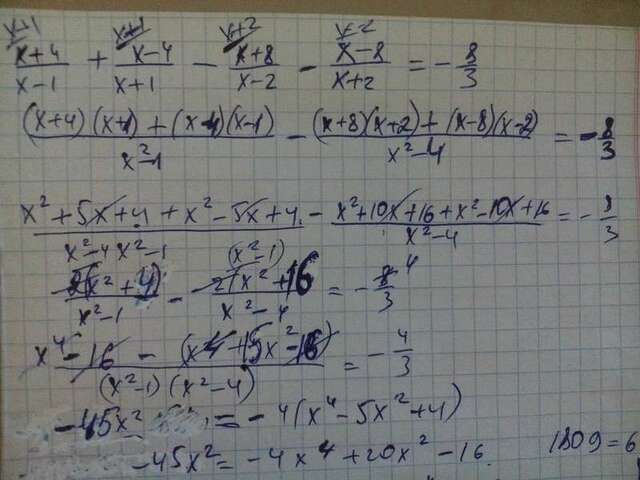 x+1 x+1 x+2 x-2
x+4/x-1 + x-4/x+1 - x+8/x-2 - x-8/x+2 = -8/3
(x+4)(x+1)+(x-4)(x-1)/x²-1 - (x+8)(x+2)+(x-8)(x-2)/x²-4 = -8/3
x²+5x+4+x²-5x+4/x²-4 x²-1 - x²+10x+16+x²-10x+16/x²-4 = -8/3
(x²-1)
2(x²+4)/x²-1 - 2(x²+16/x²-4 = -8/3 4
x⁴-16-(x⁴+15x²-16)/(x²-1)(x²-4) = -4/3
-45x² = -4(x⁴-5x²+4)
-45x² = -4x⁴+20x²-16 1809=6